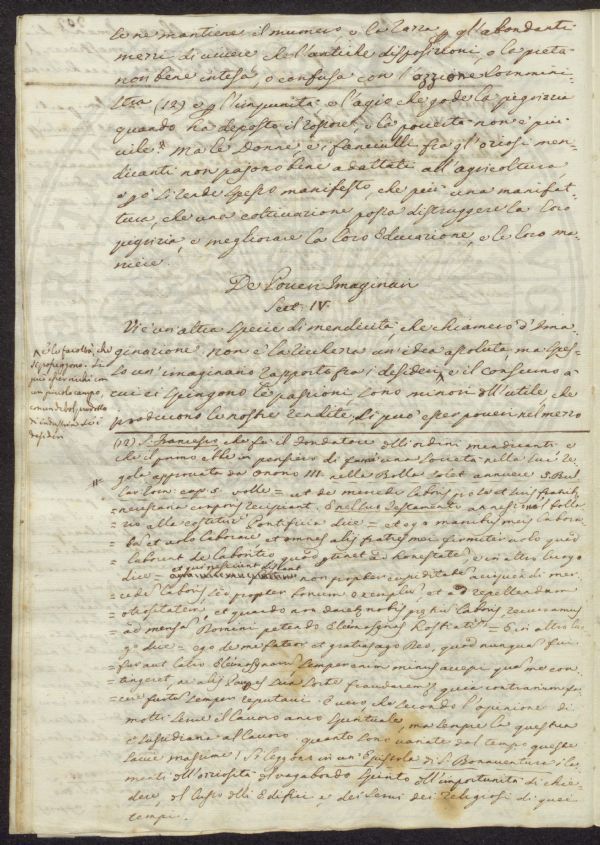 le ne mantiene il numero e la razza p gl'abondanti
mezzi di vivere che l'antiche disposizioni, o la pietà
non bene intesa, o confusa con l'ozzione
(12) e p l'impunità e l'agio che gode la pigrizia
quando ha deposto il rossore, e la povertà non è più
vile. Ma le donne e i fanciulli fra gl'oziosi men-
dicanti non pajono bene adattati all'agricoltura,
e pò si rende spesso manifesto, che più una manifat-
tura, che una coltivazione possa distruggere la loro
pigrizia, e megliorare la loro educazione, e le loro ma-
niere.
De Poveri Imaginari
Sett. IV.
Vi è un'altra specie di mendicità, che chiamerò d'Ima-
ginazione. non è la ricchezza un'idea assoluta, ma spes-
so un'imaginario rapporto fra i desideri, ^ e il consumo a
cui ci spingono le passioni, sono minori dell'utile che
producono le nostre rendite. Si può esser poveri nel mezzo
^ e le facoltà, che
si posseggono. Si
può esser ricchi con
un piccolo campo,
con un debol prodotto
d'industria se i
desideri
(12) S. Francesco che fu il fondatore degli ordini mendicanti e
che il primo ebbe in pensiero di farne una società nella sua re-
gola approvata da Onorio III nella Bolla Solet annuere
cap. 5. volle = ut de mercede laboris pro se et suis fratribus
necessaria corporis recipiant. E nel suo Testamento annesso nel bolla-
rio alla costituz Pontificia dice = et ego manibus meis labora-
bam et volo laborare et omnes alij fratres mei firmiter volo quod
laborent de laboritio quod pertinet ad honestatem e in altro luogo
dice = et qui nesciunt discant non propter cupiditatem accipiendi mer-
cedem laboris sed propter bonum exemplum et ad repellendam
otiositatem, et quando non daretur nobis pretium laboris recurramus
ad mensam Domini petendo eleemosynas hostiatim = E in altro luo-
go dice = ego de me fateor et gratias ago Deo, quod nunquam fui
fur aut latro eleemosynarum, semper enim minus accepi quam me con-
tingeret, ne alij pauperes sua sorte fraudarentur, quia contrarium fa-
cere furtum semper reputavi. È vero che secondo l'opinione di
molti serve il lavoro anco spirituale, ma sempre la questua
è sussidiaria al lavoro. quanto sono variate dal tempo queste
savie massime! Si leggono in un'Epistola di S. Bonaventura i la-
menti dell'oziosità, del vagabondo spinto, dell'importunità di chie-
dere, del lusso delli Edifici e dei Religiosi di quei
tempi.